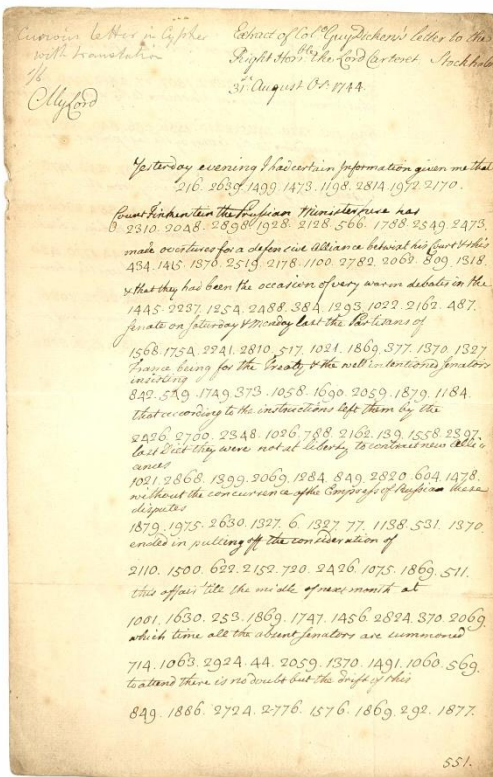 Curious letter in Cypher
with translation
Extract of Col. Guy Dickens's letter to the
Right Hon.ble the Lord Carteret Stockholm
31st August O.S. 1744.
My Lord
Yesterday evening I had certain Information given me that
216. 2639. 1499. 1473. 1198. 2814. 1972. 2170.
Count Finkenstein the Prussian Minister here has
2310. 2048. 2898. 1928. 2128. 566. 1758. 2549. 2473.
made overtures for a defensive Alliance betwixt his Court & this
434. 1415. 1370. 2519. 2178. 1100. 2782. 2062. 809. 1318.
& that they had been the occasion of very warm debates in the
1445. 2237. 1254. 2488. 384. 1293. 1022. 2162. 487.
Senate on Saturday & Monday last the Partisans of
1568. 1754. 2241. 2810. 517. 1021. 1869. 377. 1370. 1327
France being for the Treaty & the well intentioned Senators
insisting
842. 549. 1749. 373. 1058. 1690. 2059. 1879. 1184.
that according to the instructions left them by the
2426. 2709. 2348. 1026. 788. 2162. 139. 1558. 2397.
last Diet they were not at liberty to contract new Alli
ances
1021. 2868. 1399. 2069. 1284. 849. 2820. 604. 1478.
without the concurrence of the Empress of Russia these
disputes
1879. 1975. 2630. 1327. 6. 1327. 77. 1138. 531. 1370.
ended in putting off the consideration of
2110. 1500. 622. 2152. 720. 2426. 1075. 1869. 511.
this affair 'till the middle of next month at
1001. 1630. 253. 1869. 1747. 1456. 2824. 370. 2069
which time all the absent Senators are summoned
714. 1063. 2924. 44. 2059. 1370. 1491. 1060. 569.
to attend there is no doubt but the drift of this
849. 1886. 2724. 2776. 1576. 1869. 292. 1877.
551.